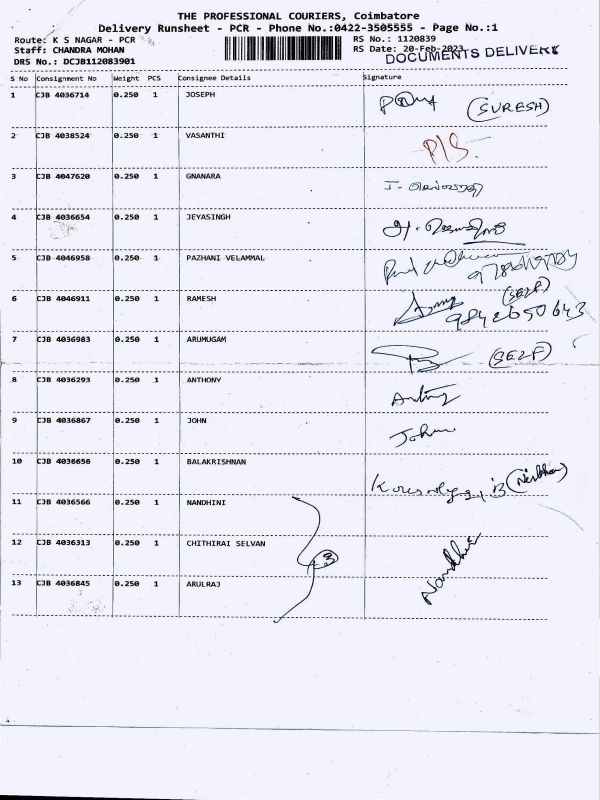 THE PROFESSIONAL COURIERS, Coimbatore
Delivery Runsheet - PCR - Phone No.:0422-3505555 - Page No.:1
Route: K S NAGAR - PCR RS No.: 1120839
Staff: CHANDRA MOHAN RS Date: 20-Feb-2023
DOCUMENTS DELIVERY
DRS No.: DCJB112083901
S No Consignment No Weight PCS Consignee Details Signature
1 CJB 4036714 0.250 1 JOSEPH (SURESH)
2 CJB 4038524 0.250 1 VASANTHI P/S.
3 CJB 4047620 0.250 1 GNANARA
4 CJB 4036654 0.250 1 JEYASINGH
5 CJB 4046958 0.250 1 PAZHANI VELAMMAL
6 CJB 4046911 0.250 1 RAMESH (SELF)
9842650643
7 CJB 4036983 0.250 1 ARUMUGAM (SELF)
8 CJB 4036293 0.250 1 ANTHONY Antony
9 CJB 4036867 0.250 1 JOHN John
10 CJB 4036656 0.250 1 BALAKRISHNAN
11 CJB 4036566 0.250 1 NANDHINI
12 CJB 4036313 0.250 1 CHITHIRAI SELVAN 3 Nandhini
13 CJB 4036845 0.250 1 ARULRAJ